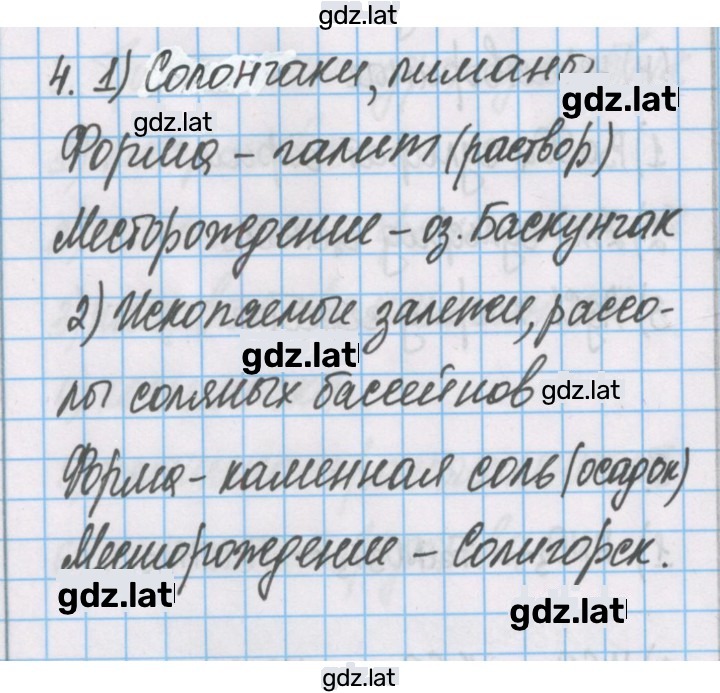 gdz.lat
4. 1) Солончаки, лиманы
gdz.lat
gdz.lat
Форма – галит (раствор)
Месторождение – оз. Баскунчак
2) Ископаемые залежи, рассо-
gdz.lat
лы соляных бассейнов
gdz.lat
Форма – каменная соль (осадок)
Месторождение – Солигорск.
gdz.lat
gdz.lat
gdz.lat